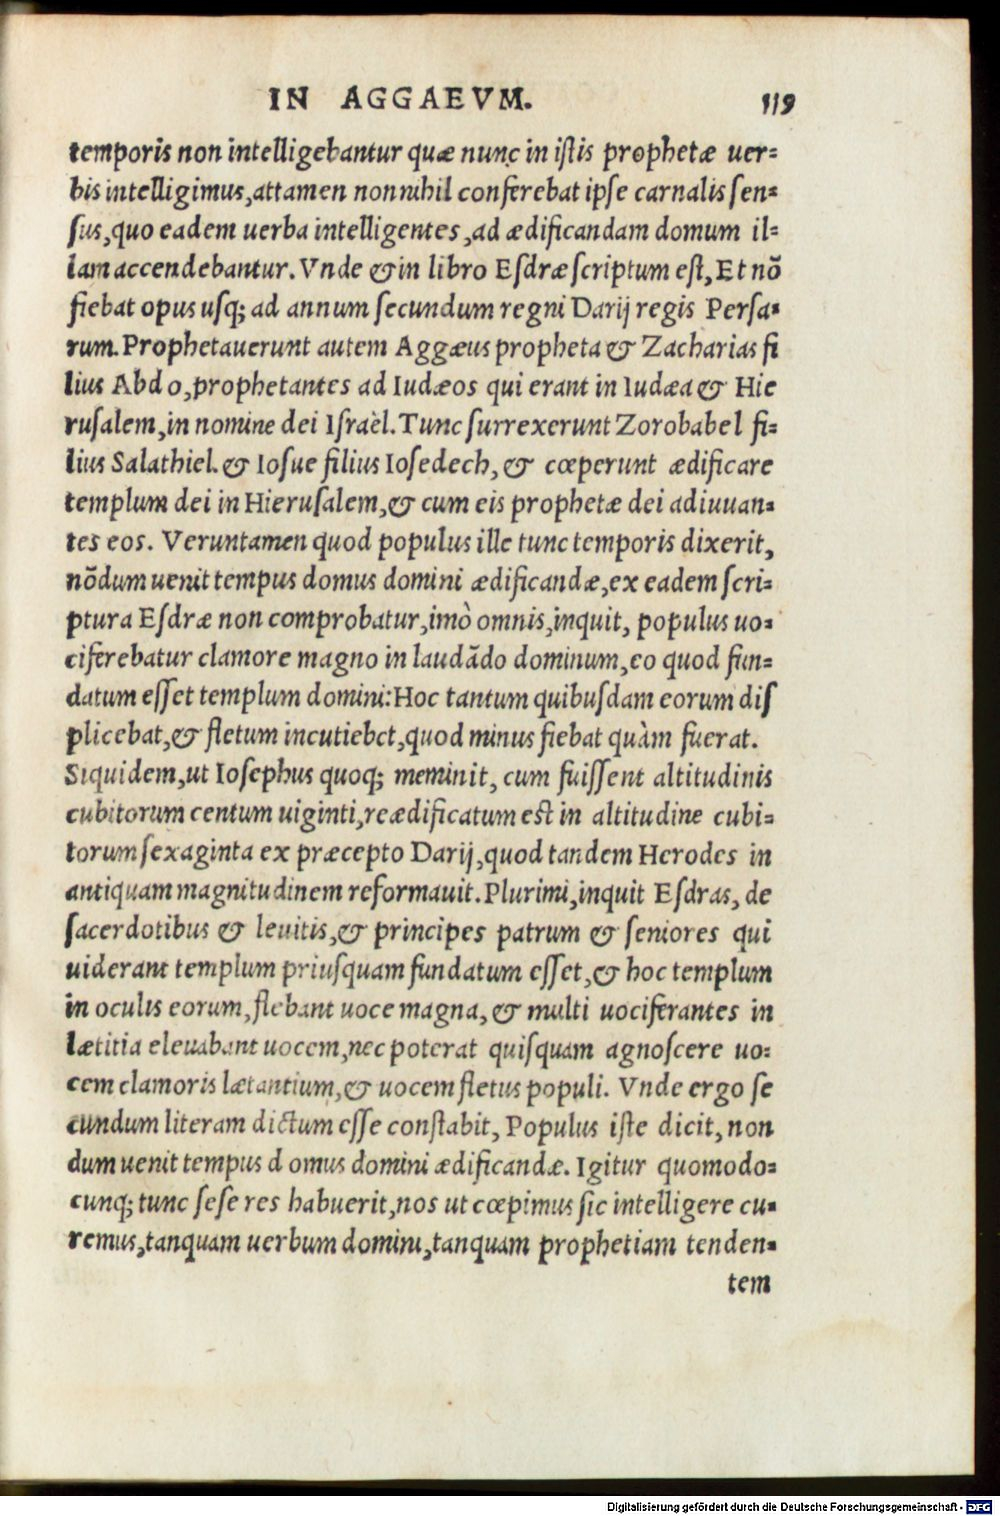 IN AGGAEVM. 119
temporis non intelligebantur quæ nunc in istis prophetæ uer-
bis intelligimus, attamen nonnihil conferebat ipse carnalis sen-
sus, quo eadem uerba intelligentes, ad ædificandam domum il-
lam accendebantur. Vnde & in libro Esdræ scriptum est, Et nō
fiebat opus usq; ad annum secundum regni Darij regis Persa-
rum. Prophetauerunt autem Aggæus propheta & Zacharias fi
lius Abdo, prophetantes ad Iudæos qui erant in Iudæa & Hie
rusalem, in nomine dei Israèl. Tunc surrexerunt Zorobabel fi-
lius Salathiel. & Iosue filius Iosedech, & cœperunt ædificare
templum dei in Hierusalem, & cum eis prophetæ dei adiuuan-
tes eos. Veruntamen quod populus ille tunc temporis dixerit,
nōdum uenit tempus domus domini ædificandæ, ex eadem scri-
ptura Esdræ non comprobatur, imò omnis, inquit, populus uo-
ciferebatur clamore magno in laudādo dominum, eo quod fun-
datum esset templum domini: Hoc tantum quibusdam eorum dis
plicebat, & fletum incutiebct, quod minus fiebat quàm fuerat.
Siquidem, ut Iosephus quoq; meminit, cum fuissent altitudinis
cubitorum centum uiginti, reædificatum est in altitudine cubi-
torum sexaginta ex præcepto Darij, quod tandem Herodes in
antiquam magnitudinem reformauit. Plurimi, inquit Esdras, de
sacerdotibus & leuitis, & principes patrum & seniores qui
uiderant templum priusquam fundatum esset, & hoc templum
in oculis eorum, flebant uoce magna, & multi uociferantes in
lætitia eleuabant uocem, nec poterat quisquam agnoscere uo-
cem clamoris lætantium, & uocem fletus populi. Vnde ergo se
cundum literam dictum esse constabit, Populus iste dicit, non
dum uenit tempus domus domini ædificandæ. Igitur quomodo-
cunq; tunc sese res habuerit, nos ut cœpimus sic intelligere cu-
remus, tanquam uerbum domini, tanquam prophetiam tenden-
tem
Digitalisierung gefördert durch die Deutsche Forschungsgemeinschaft - DFG